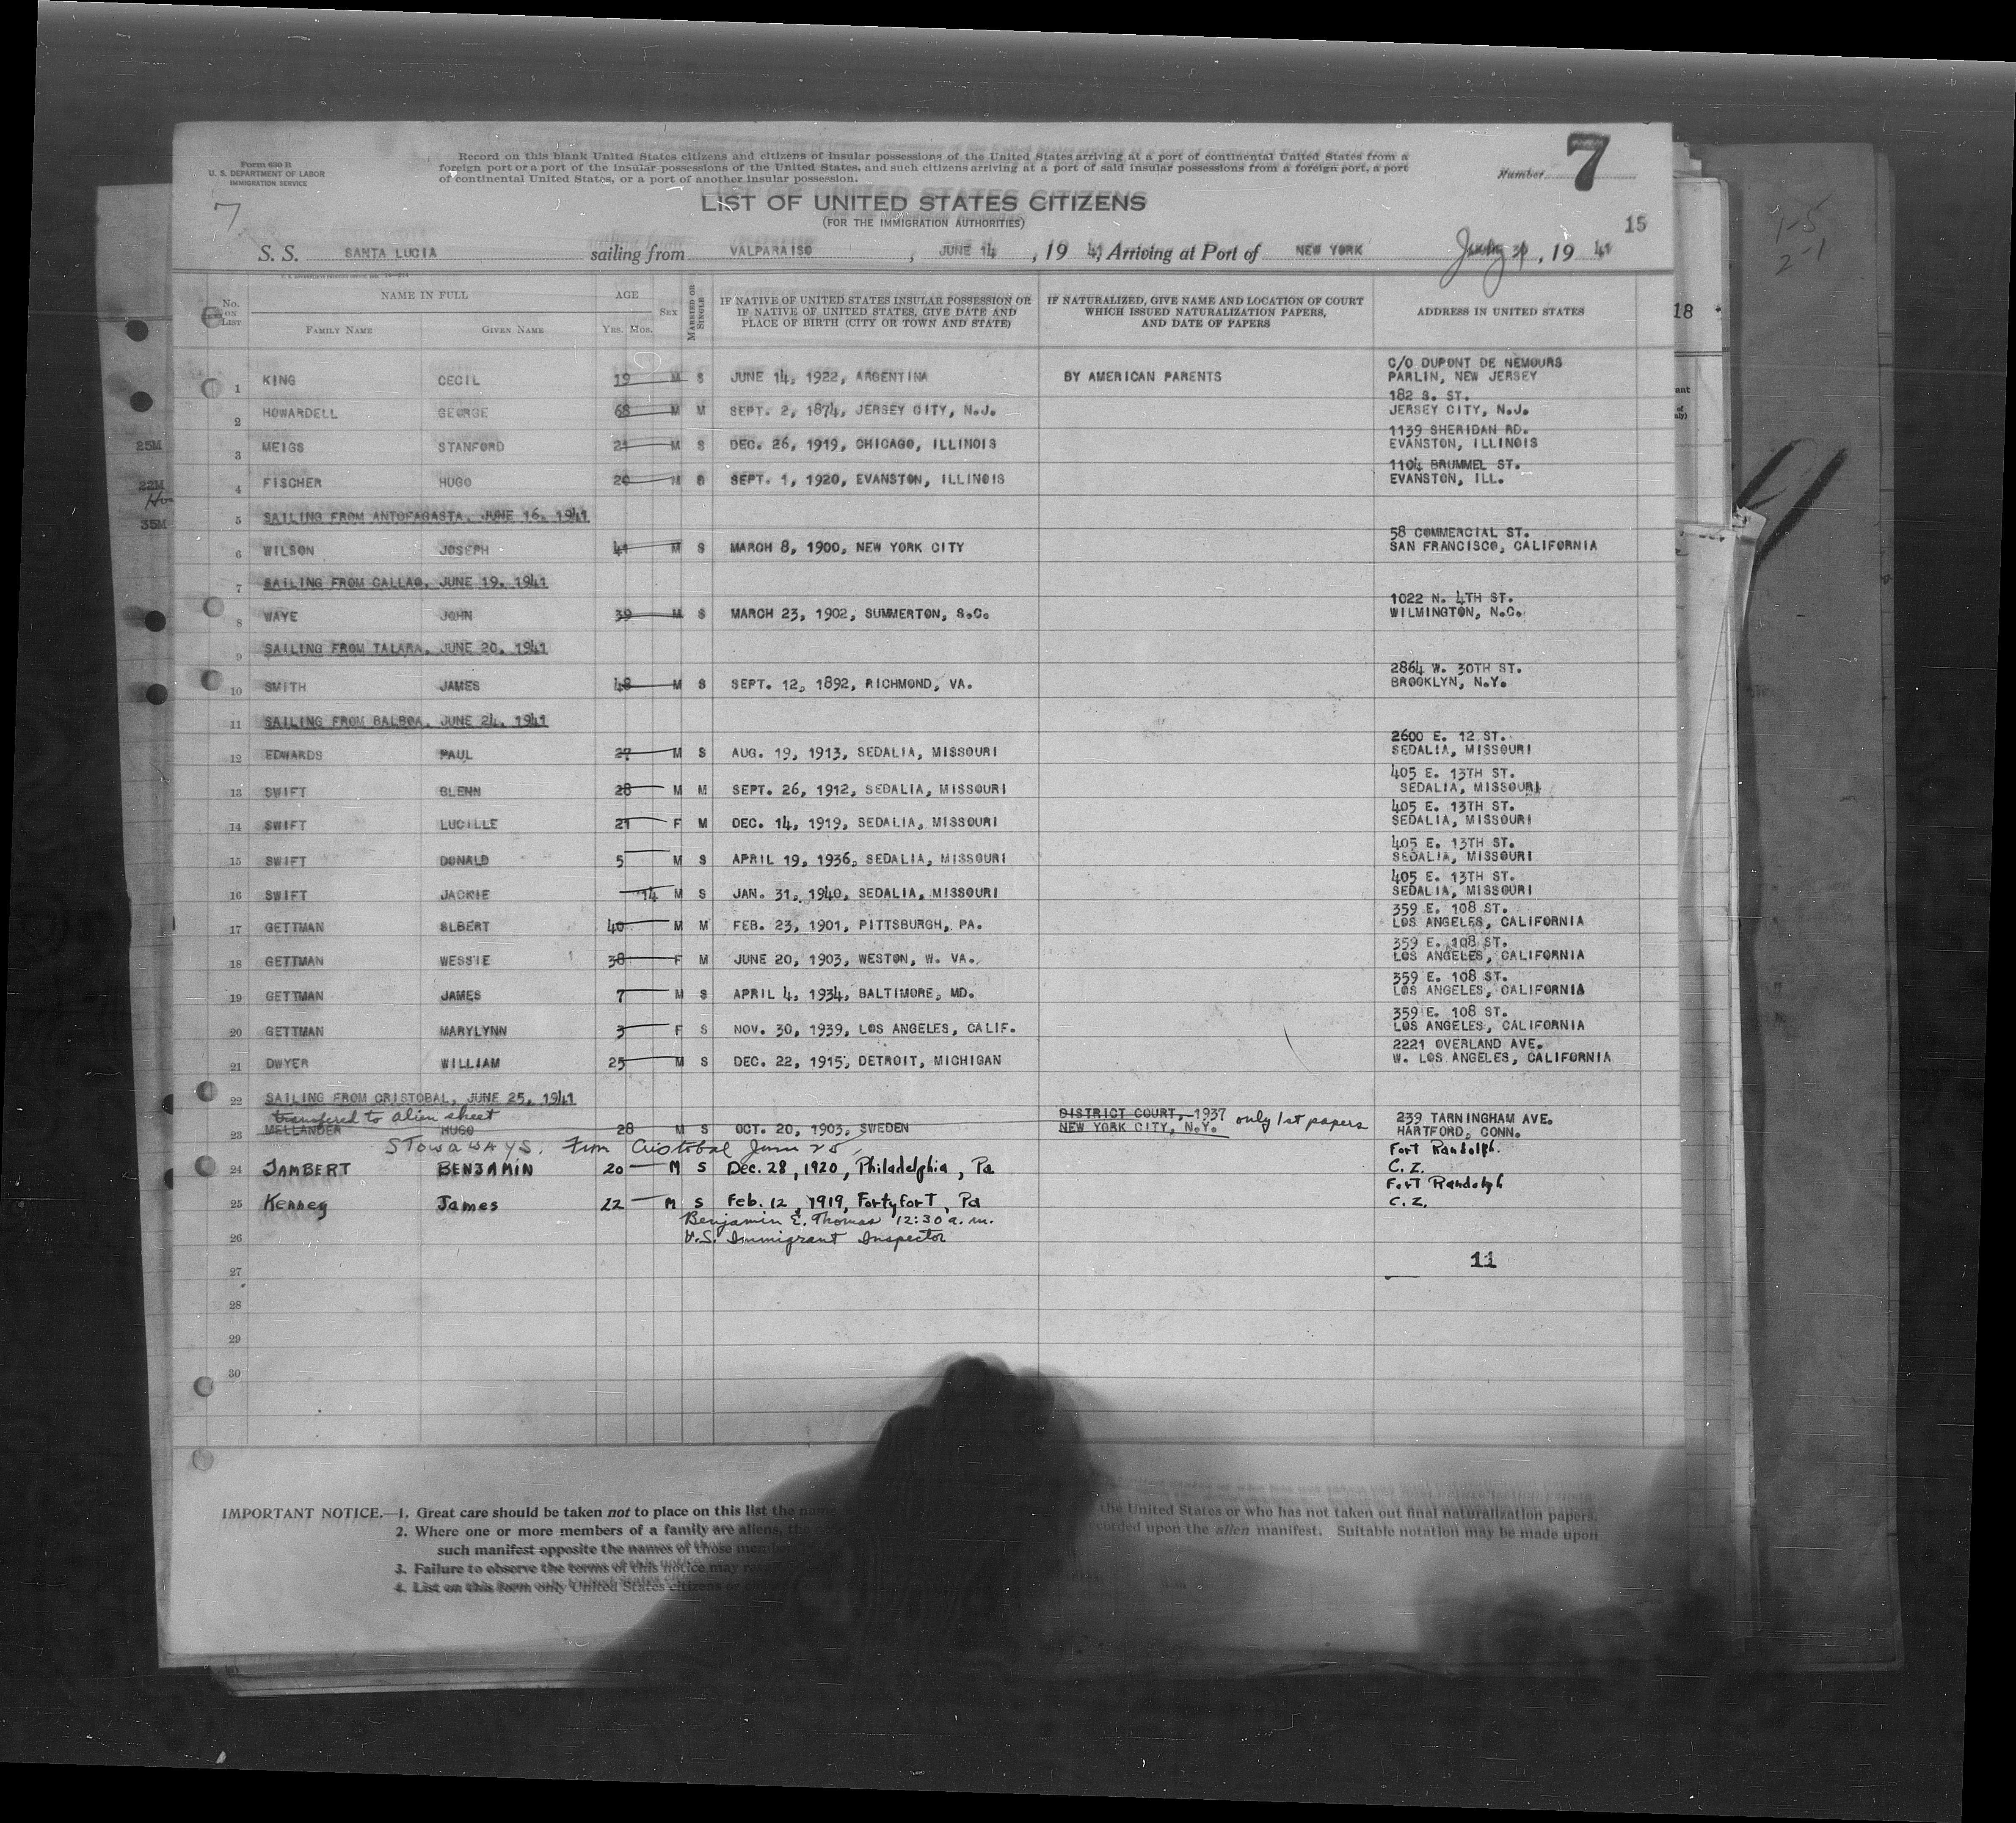 Form 630 B
U. S. DEPARTMENT OF LABOR
IMMIGRATION SERVICE
7
Record on this blank United States citizens and citizens of insular possessions of the United States arriving at a port of continental United States from a
foreign port or a port of the insular possessions of the United States, and such citizens arriving at a port of said insular possessions from a foreign port, a port
of continental United States, or a port of another insular possession.
Number 7
LIST OF UNITED STATES CITIZENS
(FOR THE IMMIGRATION AUTHORITIES)
15
S. S. SANTA LUCIA sailing from VALPARAISO, JUNE 14, 1941, Arriving at Port of NEW YORK July 1, 1941
No. ON LIST
NAME IN FULL
FAMILY NAME GIVEN NAME
AGE
Yrs. Mos.
SEX
MARRIED OR SINGLE
IF NATIVE OF UNITED STATES INSULAR POSSESSION OR
IF NATIVE OF UNITED STATES, GIVE DATE AND
PLACE OF BIRTH (CITY OR TOWN AND STATE)
IF NATURALIZED, GIVE NAME AND LOCATION OF COURT
WHICH ISSUED NATURALIZATION PAPERS,
AND DATE OF PAPERS
ADDRESS IN UNITED STATES
18
C/O DUPONT DE NEMOURS
1 KING CECIL 19 M S JUNE 14, 1922, ARGENTINA BY AMERICAN PARENTS PARLIN, NEW JERSEY
182 S. ST.
2 HOWARDELL GEORGE 68 M M SEPT. 2, 1874, JERSEY CITY, N.J. JERSEY CITY, N.J.
1139 SHERIDAN RD.
25M 3 MEIGS STANFORD 21 M S DEC. 26, 1919, CHICAGO, ILLINOIS EVANSTON, ILLINOIS
1104 BRUMMEL ST.
22M 4 FISCHER HUGO 20 M S SEPT. 1, 1920, EVANSTON, ILLINOIS EVANSTON, ILL.
35M 5 SAILING FROM ANTOFAGASTA, JUNE 16, 1941
58 COMMERCIAL ST.
6 WILSON JOSEPH 41 M S MARCH 8, 1900, NEW YORK CITY SAN FRANCISCO, CALIFORNIA
7 SAILING FROM CALLAO, JUNE 19, 1941
1022 N. 4TH ST.
8 WAYE JOHN 39 M S MARCH 23, 1902, SUMMERTON, S.C. WILMINGTON, N.C.
9 SAILING FROM TALARA, JUNE 20, 1941
2864 W. 30TH ST.
10 SMITH JAMES 48 M S SEPT. 12, 1892, RICHMOND, VA. BROOKLYN, N.Y.
11 SAILING FROM BALBOA, JUNE 24, 1941
2600 E. 12 ST.
12 EDWARDS PAUL 27 M S AUG. 19, 1913, SEDALIA, MISSOURI SEDALIA, MISSOURI
405 E. 13TH ST.
13 SWIFT GLENN 28 M M SEPT. 26, 1912, SEDALIA, MISSOURI SEDALIA, MISSOURI
405 E. 13TH ST.
14 SWIFT LUCILLE 21 F M DEC. 14, 1919, SEDALIA, MISSOURI SEDALIA, MISSOURI
405 E. 13TH ST.
15 SWIFT DONALD 5 M S APRIL 19, 1936, SEDALIA, MISSOURI SEDALIA, MISSOURI
405 E. 13TH ST.
16 SWIFT JACKIE 14 M S JAN. 31, 1940, SEDALIA, MISSOURI SEDALIA, MISSOURI
359 E. 108 ST.
17 GETTMAN ELBERT 40 M M FEB. 23, 1901, PITTSBURGH, PA. LOS ANGELES, CALIFORNIA
359 E. 108 ST.
18 GETTMAN WESSIE 38 F M JUNE 20, 1903, WESTON, W. VA. LOS ANGELES, CALIFORNIA
359 E. 108 ST.
19 GETTMAN JAMES 7 M S APRIL 4, 1934, BALTIMORE, MD. LOS ANGELES, CALIFORNIA
359 E. 108 ST.
20 GETTMAN MARYLYNN 3 F S NOV. 30, 1939, LOS ANGELES, CALIF. LOS ANGELES, CALIFORNIA
2221 OVERLAND AVE.
21 DWYER WILLIAM 25 M S DEC. 22, 1915, DETROIT, MICHIGAN W. LOS ANGELES, CALIFORNIA
22 SAILING FROM CRISTOBAL, JUNE 25, 1941
transfered to alien sheet DISTRICT COURT, 1937 only 1st papers 239 TARNINGHAM AVE.
23 MELLANDER HUGO 28 M S OCT. 20, 1903, SWEDEN NEW YORK CITY, N.Y. HARTFORD, CONN.
STOWAWAYS. From Cristobal June 25, Fort Randolph.
24 JAMBERT BENJAMIN 20 M S Dec. 28, 1920, Philadelphia, Pa C. Z.
Fort Randolph
25 Kenney James 22 M S Feb. 12, 1919, FortyforT, Pa C. Z.
Benjamin E. Thomas 12:30 a.m.
26 U.S. Immigrant Inspector
11
27
28
29
30
IMPORTANT NOTICE.—1. Great care should be taken not to place on this list the name the United States or who has not taken out final naturalization papers.
2. Where one or more members of a family are aliens, the recorded upon the alien manifest. Suitable notation may be made upon
such manifest opposite the names of those
3. Failure to observe the terms of this notice may
4. List on this form only United States citizens or